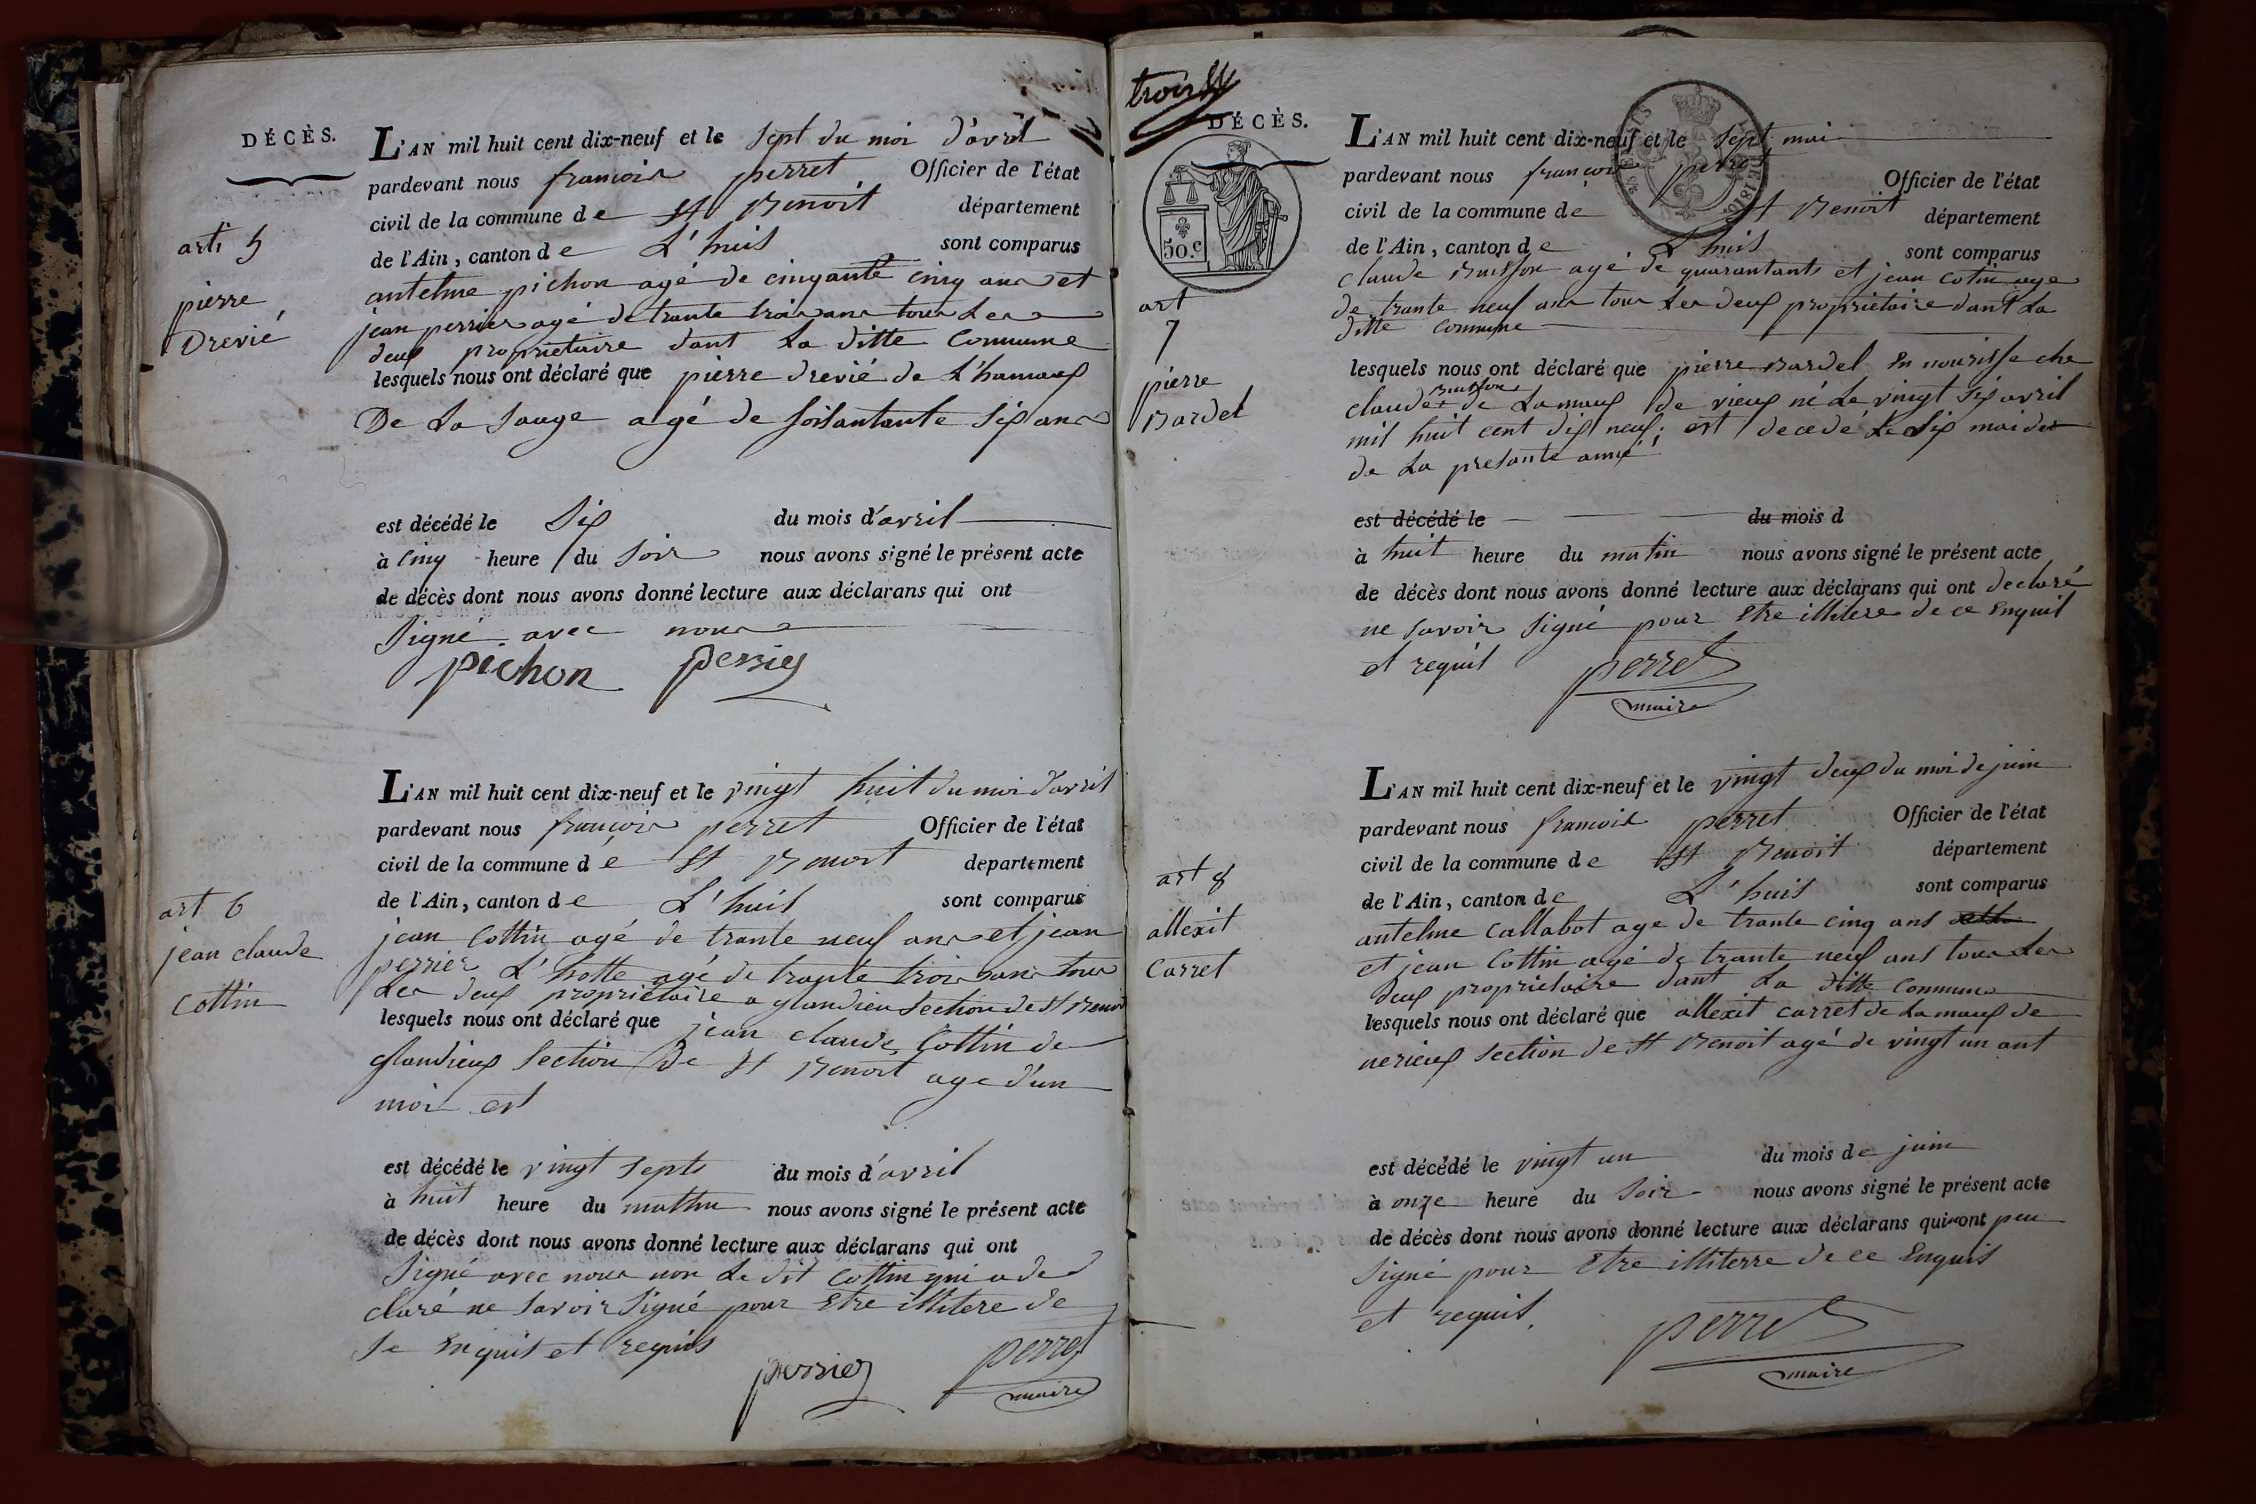 DÉCÈS.
L'AN mil huit cent dix-neuf et le sept du moi d'avril
pardevant nous francois perret Officier de l'état
civil de la commune de St Benoit département
de l'Ain, canton de L'huis sont comparus
arti 5
pierre
Drevié
antelme pichon agé de cinqante cinq ans et
jean perrier agé de trante trois ans tous Les
deux propriétaire dant La ditte Commune
lesquels nous ont déclaré que pierre drevié de L'hamaux
De La Sauge agé de soisantante six ans
est décédé le Six du mois d'avril
à Cinq heure du Soir nous avons signé le présent acte
de décès dont nous avons donné lecture aux déclarans qui ont
Signé avec nous
pichon perrier
L'AN mil huit cent dix-neuf et le vingt huit du moi d'avril
pardevant nous francois perret Officier de l'état
civil de la commune dé St Benoit departement
de l'Ain, canton de L'huis sont comparus
art 6
jean claude
Cottin
jean Cottin agé de trante neuf ans et jean
perrier L'hotte agé de trante trois ans tous
Les deux propriétaire a glandieu Section de St Benoit
lesquels nous ont déclaré que jean claude Cottin de
glandieux Section De St Benoit age d'un
moi est
est décédé le vingt septs du mois d'avril
à huit heure du mattin nous avons signé le présent acte
de décès dont nous avons donné lecture aux déclarans qui ont
Signé avec nous non Le dit Cottin qui a de
claré ne Savoir Signé pour Etre illitere de
Se Enquit et requis
perrier perret
maire
trois
DÉCÈS.
50.c
L'AN mil huit cent dix-neuf et le Sept mai
pardevant nous françois perret Officier de l'état
civil de la commune de St Benoit département
de l'Ain, canton de L'huis sont comparus
art
7
pierre
Bardet
claude Buisson agé de quarantants et jean Cotin age
de trante neuf ans tous Les deux propriétaire dant La
ditte Commune
lesquels nous ont déclaré que pierre Bardel En nourisse che
Buisson
claude de Lamaux de vieux né Le vingt six avril
mil huit cent dix neuf est decedé Le Six mai
de La presante anné
est décédé le du mois d
à huit heure du matin nous avons signé le présent acte
de décès dont nous avons donné lecture aux déclarans qui ont declaré
ne Savoir Signé pour Etre illitere de ce Enquit
et requit perret
maire
L'AN mil huit cent dix-neuf et le vingt deux du moi de juin
pardevant nous francois perret Officier de l'état
civil de la commune de St Benoit département
de l'Ain, canton de L'huis sont comparus
art 8
allexit
Carret
antelme Callabot age de trante cinq ans
et jean Cottin agé de trante neuf ans tous Les
deux propriétaire dant La ditte Commune
lesquels nous ont déclaré que allexit carret de Lamaux de
nerieux Section de St Benoit agé de vingt un ant
est décédé le vingt un du mois de juin
à onze heure du Soir nous avons signé le présent acte
de décès dont nous avons donné lecture aux déclarans qui ont peu
Signé pour Etre illiterre de ce Enquis
et requis.
perret
maire